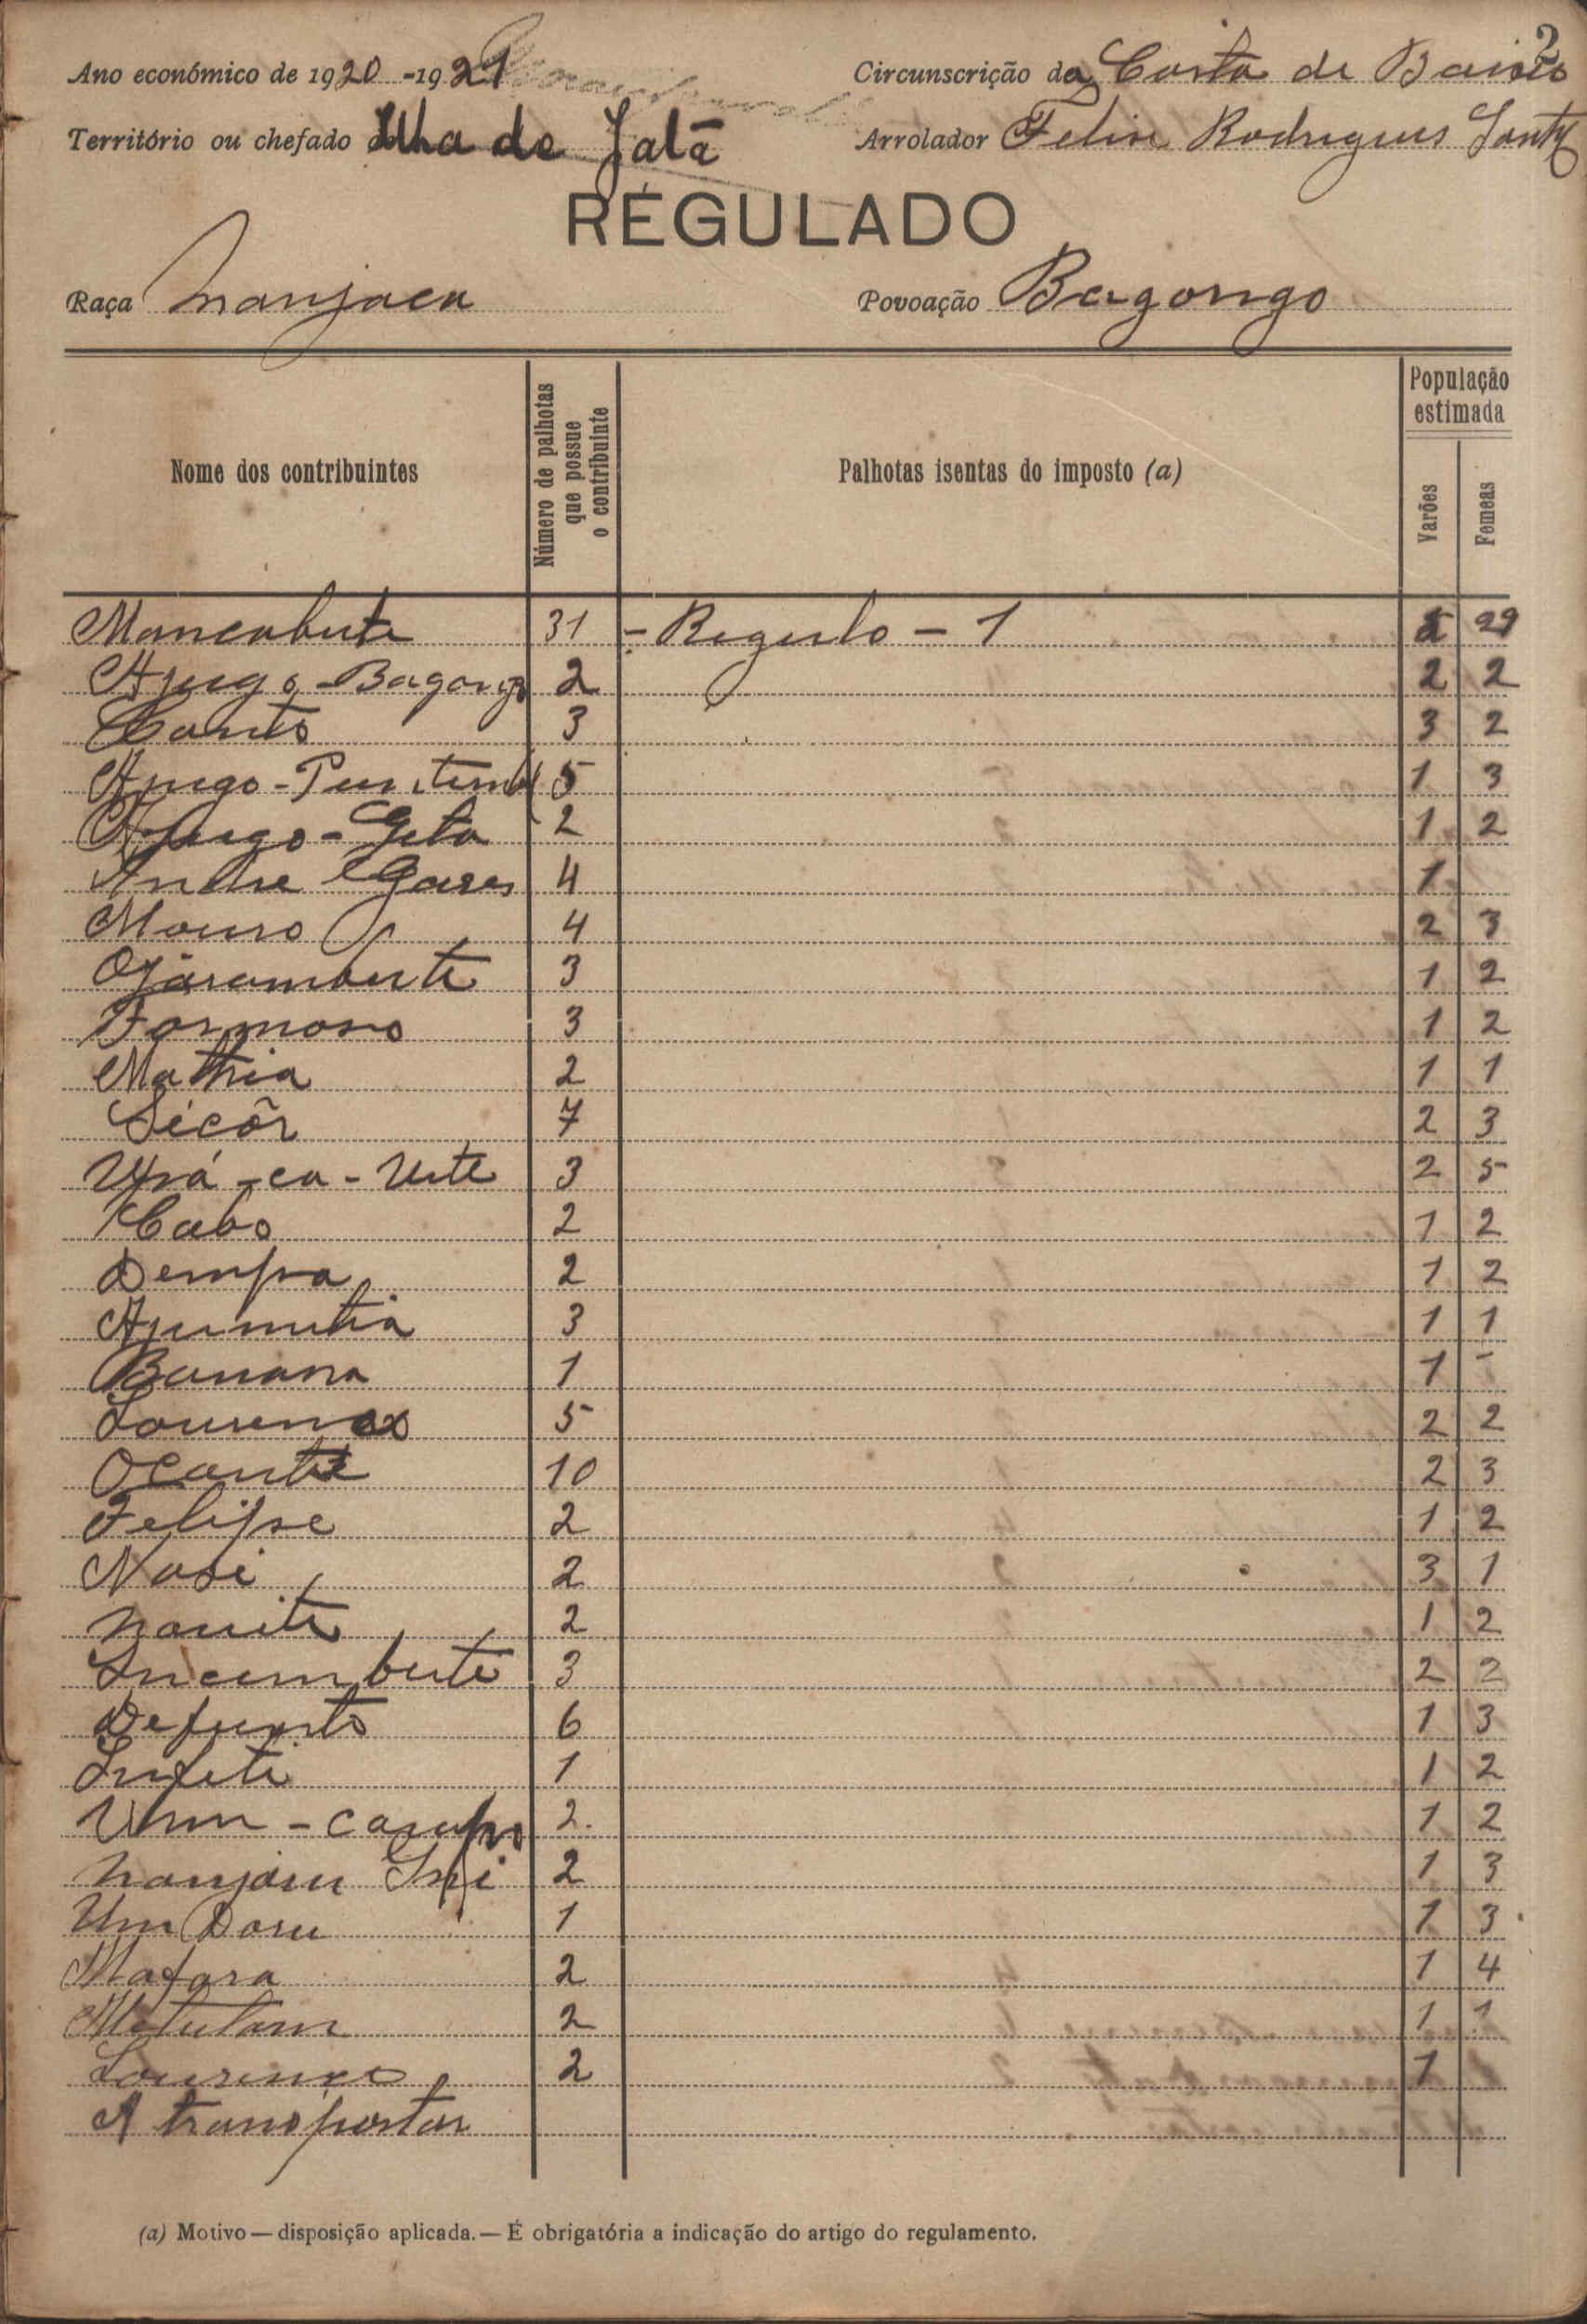 2
Ano económico de 1920-1921 Circunscrição da Costa de Baixo
Território ou chefado Ilha de Jatã Arrolador Felix Rodrigues
RÉGULADO
Raça Manjaca Povoação Bagongo
Nome dos contribuintes Número de palhotas que possue o contribuinte Palhotas isentas do imposto (a) População estimada Varões Femeas
Mancabute 31 - Regulo - 1 29
Apugo-Bagongo 2 2 2
Canto 3 3 2
Apugo- 5 1 3
Apugo-Geta 2 1 2
Andre Gares 4 1
Mouro 4 2 3
Ojarambute 3 1 2
Formoso 3 1 2
Mathia 2 1 1
Sécôr 7 2 3
Upá-ca-Ute 3 2 5
Cabo 2 1 2
Dempa 2 1 2
3 1 1
Banana 1 1 -
Lourenço 5 2 2
Ocante 10 2 3
Felipe 2 1 2
Nasi 2 3 1
Nanite 2 1 2
Incumbute 3 2 2
Defunto 6 1 3
Infeti 1 1 2
Um-campo 2 1 2
2 1 3
Um Doru 1 1 3
Mafara 2 1 4
Metutam 2 1 1
Lourenço 2 1
A transportar
(a) Motivo — disposição aplicada. — É obrigatória a indicação do artigo do regulamento.